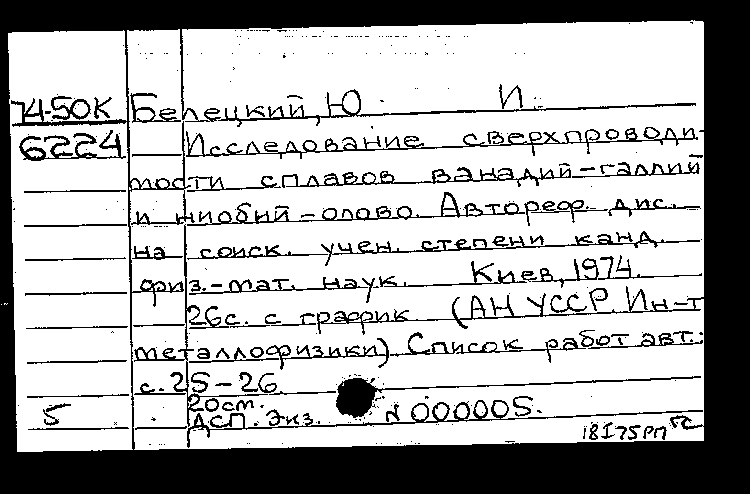 74-50К Белецкий, Ю. И.
6224 Исследование сверхпроводи-
мости сплавов ванадий-галлий
и ниобий-олово. Автореф. дис.
на соиск. учен. степени канд.
физ.-мат. наук. Киев, 1974.
26с. с график (АН УССР. Ин-т
металлофизики). Список работ авт.:
с. 25-26
20см.
5 ДСП. Экз. № 000005.
18I75РП